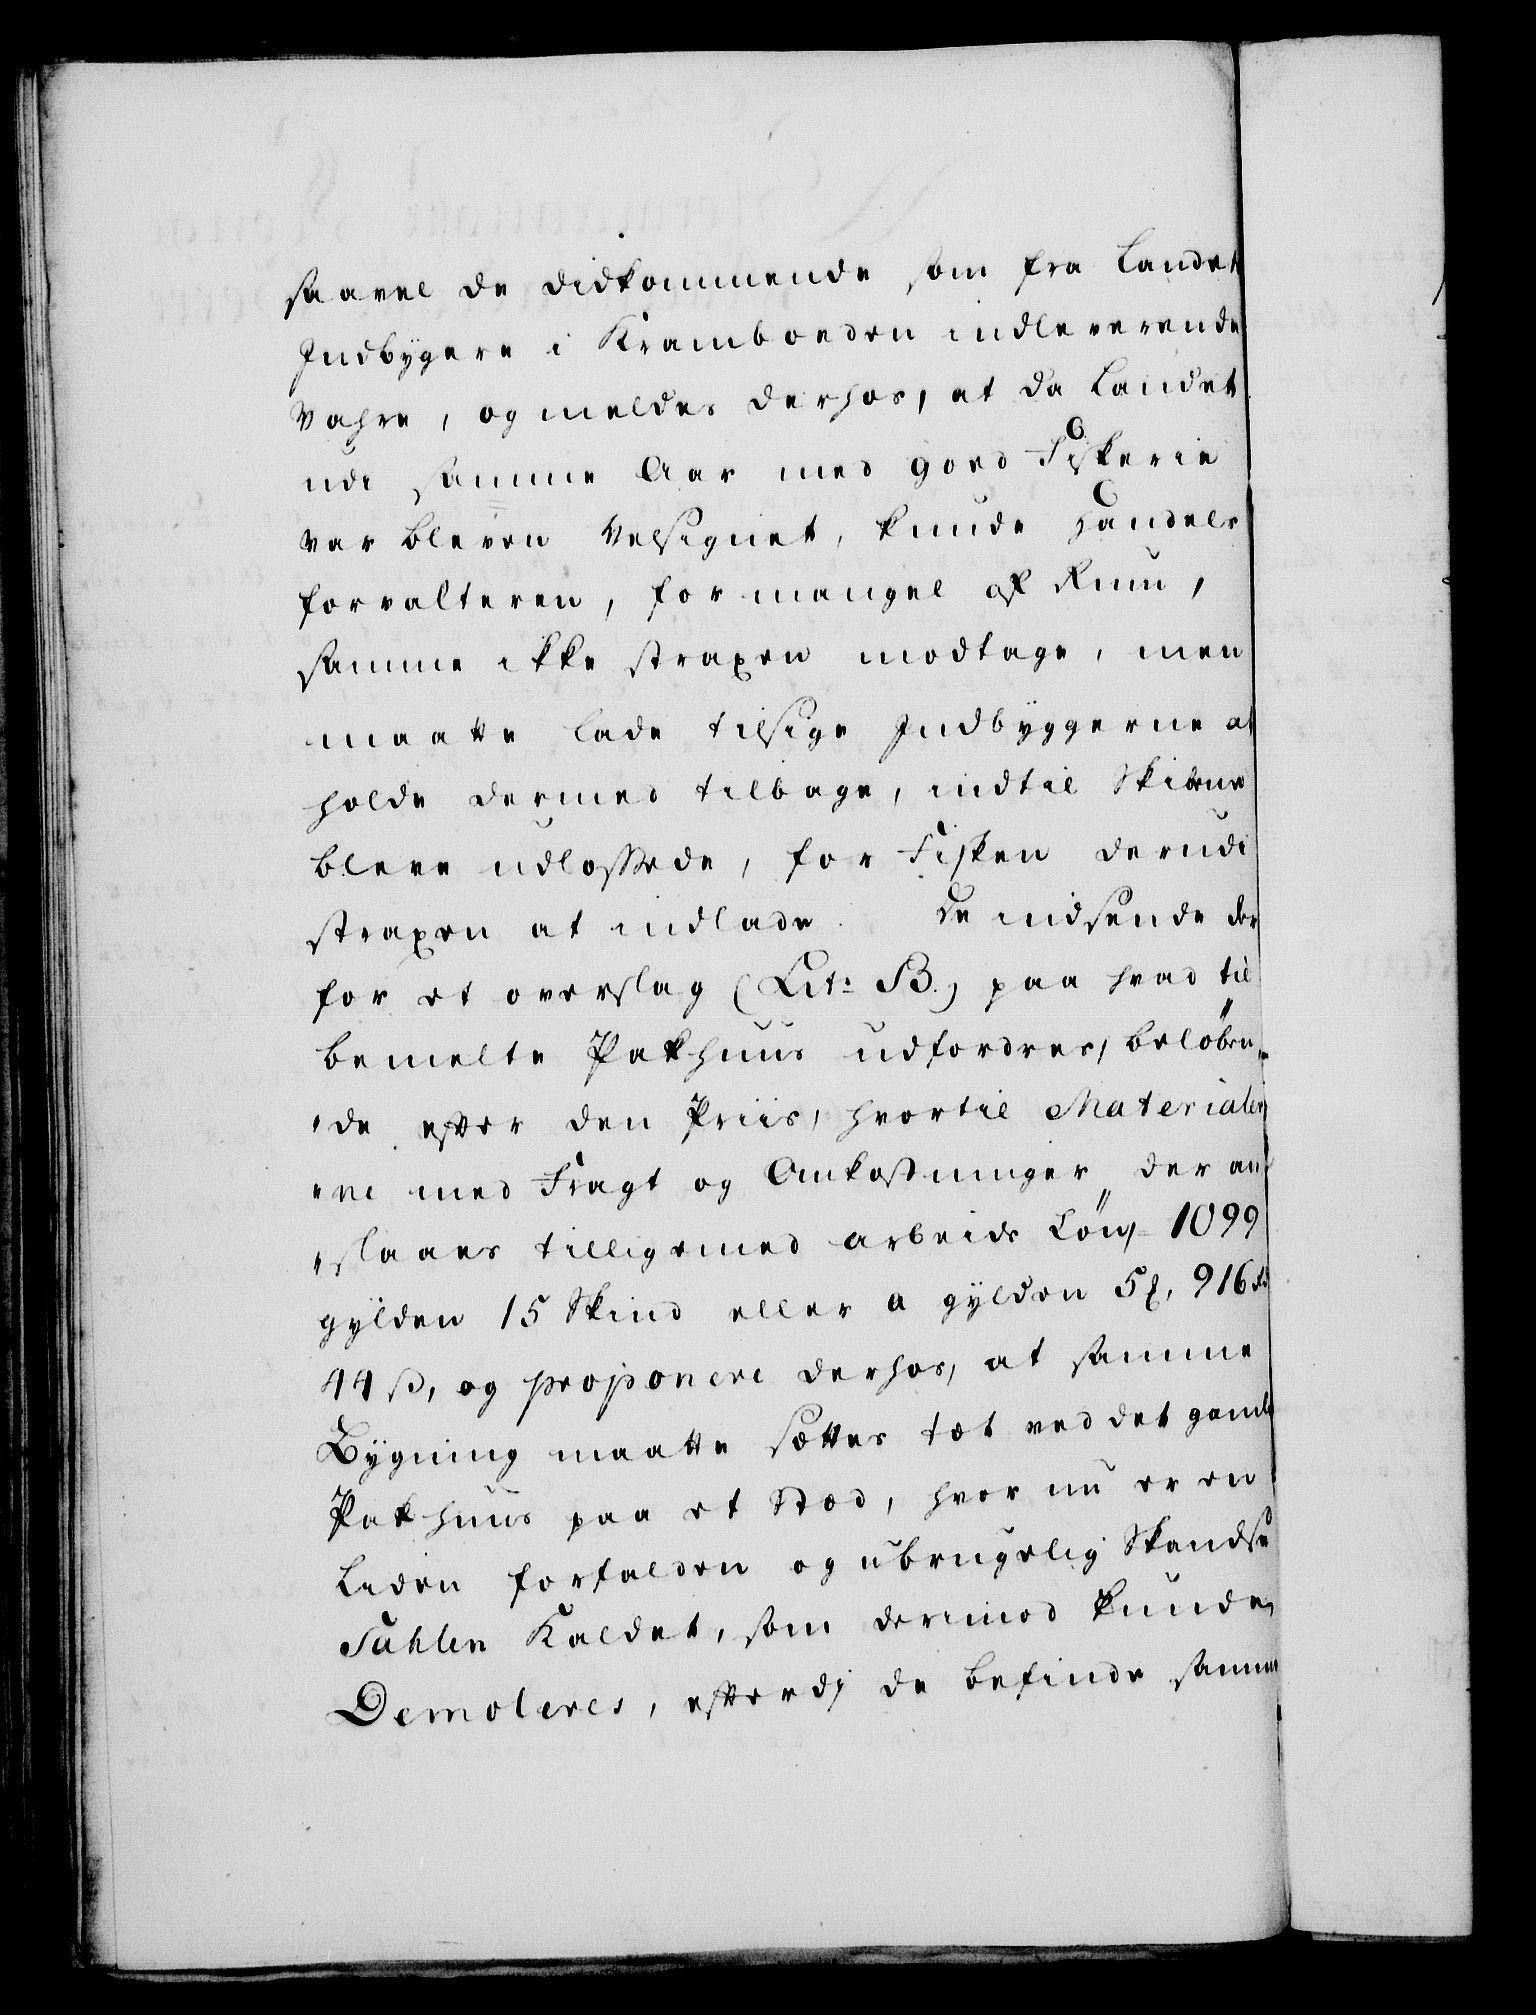 saavel de didkommende som fra Landets
Indbygere i Kramboeden indleverende
Vahre, og meldes derhos, at da Landet
udi samme Aar med goed Fiskerie
var bleven velsignet, kunde Handels
forvalteren, for mangel af Rum,
samme ikke straxen modtage, men
maatte lade tilsige Indbyggerne at
holde dermed tilbage, indtil Skibene
bleve udlossede, for Fisken derudi
straxen at indlade. De indsende der
for et overslag (Lit: B.) paa hvad til
bemelte Pakhuus udfordres, beløben„
„de efter den Priis, hvortil Materialer„
„ne med Fragt og Omkostninger der an„
„slaaes tilligemed arbeids Løn, 1099
gylden 15 Skind eller a gylden 5 ℥, 916 Rd
44 ß, og proponere derhos, at samme
Bygning maatte sættes tæt ved det gamle
Pakhuus paa et Stæd, hvor nu er en
liden forfalden og ubrugelig Skandse
Kaldet, som derimod kunde
Demoleres, efterdj de befinde samme